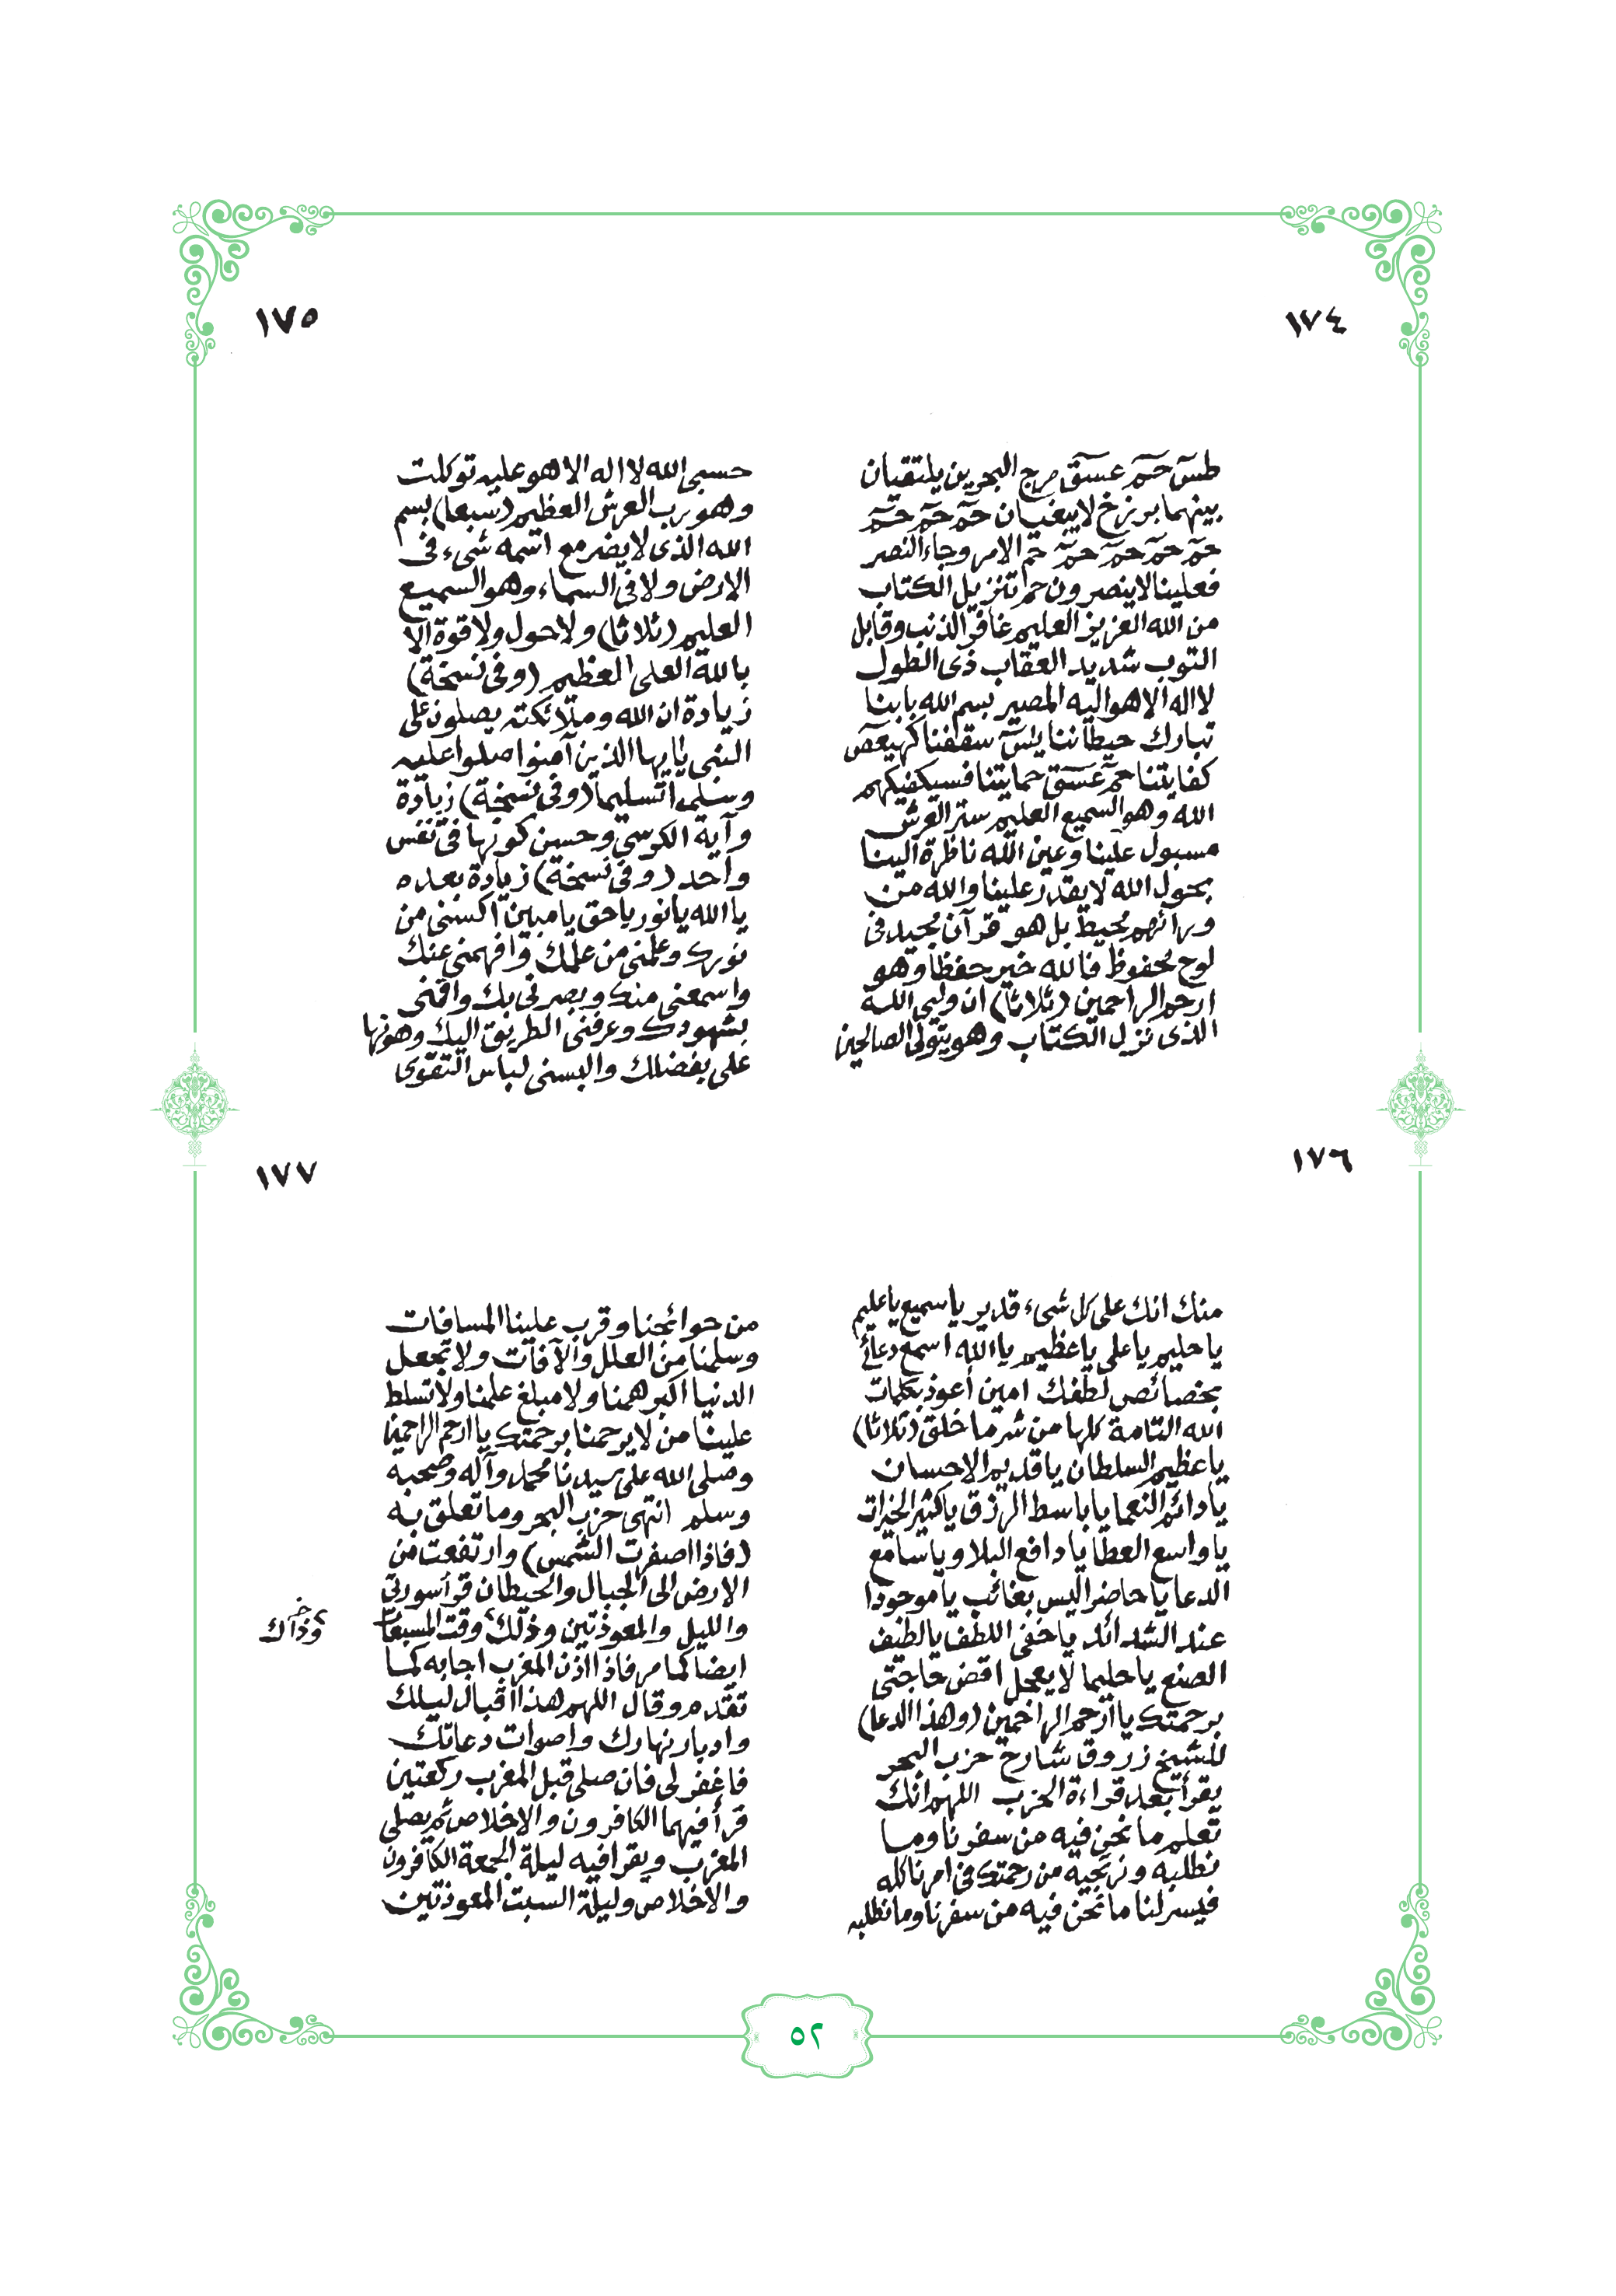 ١٧٤
طسٓ حمٓ عسٓقٓ مرج البحرين يلتقيان
بينهما برزخ لا يبغيان حمٓ حمٓ حمٓ
حمٓ حمٓ حمٓ حمٓ حم الامر وجاء النصر
فعلينا لا ينصرون حم تنزيل الكتاب
من الله العزيز العليم غافر الذنب وقابل
التوب شديد العقاب ذى الطول
لا اله الا هو اليه المصير بسم الله بابنا
تبارك حيطاننا يسٓ سقفنا كهيعٓصٓ
كفايتنا حمٓ عسٓقٓ حمايتنا فسيكفيكهم
الله وهو السميع العليم ستر العرش
مسبول علينا وعين الله ناظرة الينا
بحول الله لا يقدر علينا والله من
ورآئهم محيط بل هو قرآن مجيد فى
لوح محفوظ فالله خير حفظا وهو
ارحم الراحمين (ثلاثا) ان وليى الله
الذى نزل الكتاب وهو يتولى الصالحين
١٧٥
حسبى الله لا اله الا هو عليه توكلت
وهو رب العرش العظيم (سبعا) بسم
الله الذى لا يضر مع اسمه شىء فى
الارض ولا فى السماء وهو السميع
العليم (ثلاثا) ولا حول ولا قوة الا
بالله العلى العظيم (وفى نسخة)
زيادة ان الله وملائكته يصلون على
النبى يايها الذين آمنوا صلوا عليه
وسلموا تسليما (وفى نسخة) زيادة
وآية الكرسي وحسين كونها فى نفس
واحد (وفى نسخة) زيادة بعده
يا الله يا نور يا حق يا مبين اكسنى من
نورك وعلمنى من علمك وافهمنى عنك
واسمعنى منك وبصرنى بك واقمنى
بشهودك وعرفنى الطريق اليك وهونها
على بفضلك والبسنى لباس التقوى
١٧٦
منك انك على كل شىء قدير يا سميع يا عليم
يا حليم يا على يا عظيم يا الله اسمع دعائى
بخصائص لطفك امين أعوذ بكلمات
الله التامة كلها من شر ما خلق (ثلاثا)
يا عظيم السلطان يا قديم الاحسان
يا دائم النعما يا باسط الرزق يا كثير الخيرات
يا واسع العطا يا دافع البلا ويا سامع
الدعا يا حاضرا ليس بغائب يا موجودا
عند الشدائد يا خفى اللطف يا لطيف
الصنع يا حليما لا يعجل اقض حاجتى
برحمتك يا ارحم الراحمين (وهذا الدعا)
للشيخ زروق شارح حزب البحر
يقرأ بعد قراءة الحزب اللهم انك
تعلم ما نحن فيه من سفرنا وما
نطلبه ونرتجيه من رحمتك فى امرنا كله
فيسر لنا ما نحن فيه من سفرنا وما نطلبه
١٧٧
من حوائجنا وقرب علينا المسافات
وسلمنا من العلل والآفات ولا تجعل
الدنيا اكبر همنا ولا مبلغ علمنا ولا تسلط
علينا من لا يرحمنا برحمتك يا ارحم الراحمين
وصلى الله على سيدنا محمد وآله وصحبه
وسلم انتهى حزب البحر وما تعلق به
(فاذا اصفرت الشمس) وارتفعت من
الارض الى الجبال والحيطان قرأ سورتى
والليل والمعوذتين وذلك وقت المسبعات
ايضا كما مر فاذا اذن المغرب اجابه كما
تقدم وقال اللهم هذا اقبال ليلك
وادبار نهارك واصوات دعاتك
فاغفر لى فان صلى قبل المغرب ركعتين
قرأ فيهما الكافرون والاخلاص ثم يصلى
المغرب ويقرا فيه ليلة الجمعة الكافرون
والاخلاص وليلة السبت المعوذتين
وذاك
٥٢